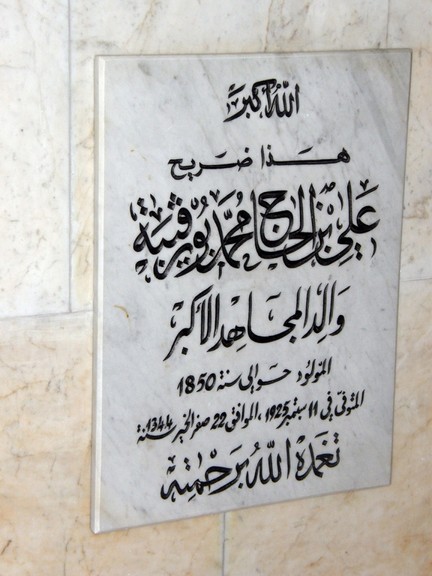 الله أكبر
هذا ضريح
علي بن الحاج محمد بورقيبة
والد المجاهد الأكبر
المولود حوالي سنة 1850
المتوفّى في 11 سبتمبر 1925، الموافق 22 صفر الخير سنة 1344
تغمده الله برحمته